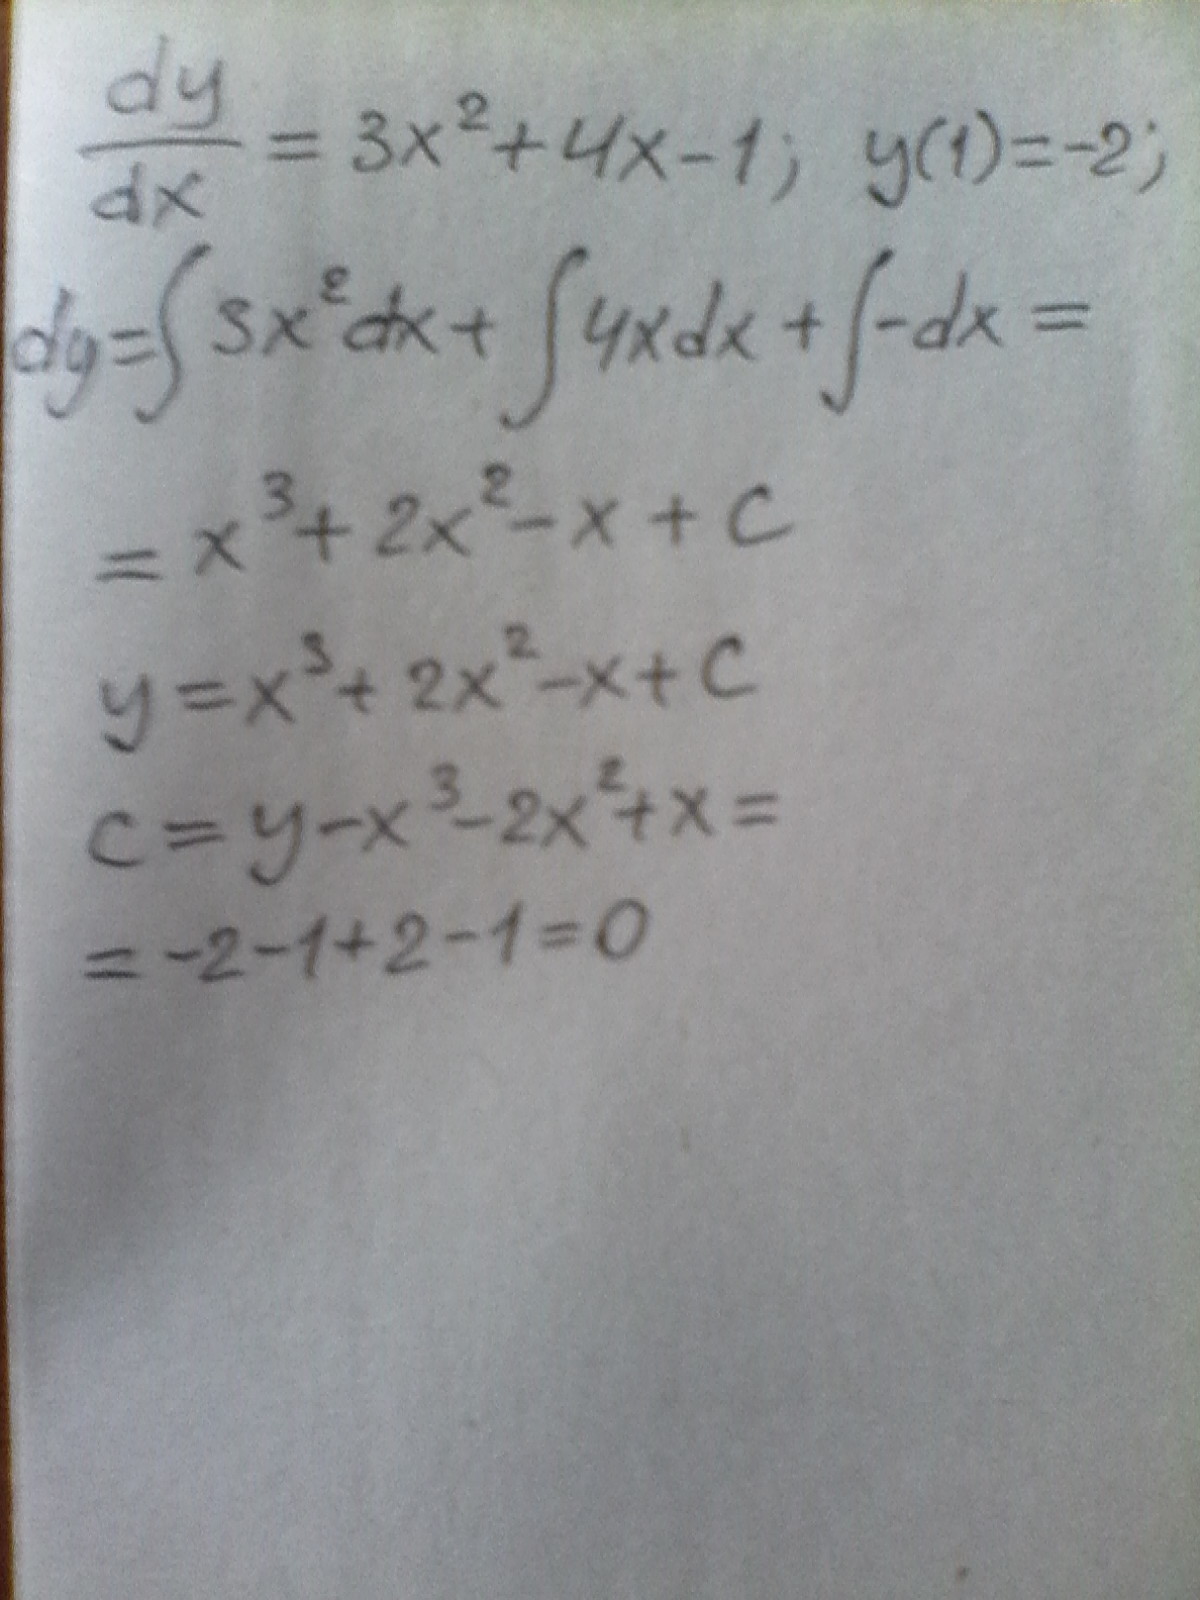 dy/dx = 3x² + 4x - 1; y(1) = -2;
dy = ∫ 3x² dx + ∫ 4x dx + ∫ - dx =
= x³ + 2x² - x + C
y = x³ + 2x² - x + C
C = y - x³ - 2x² + x =
= -2 - 1 + 2 - 1 = 0